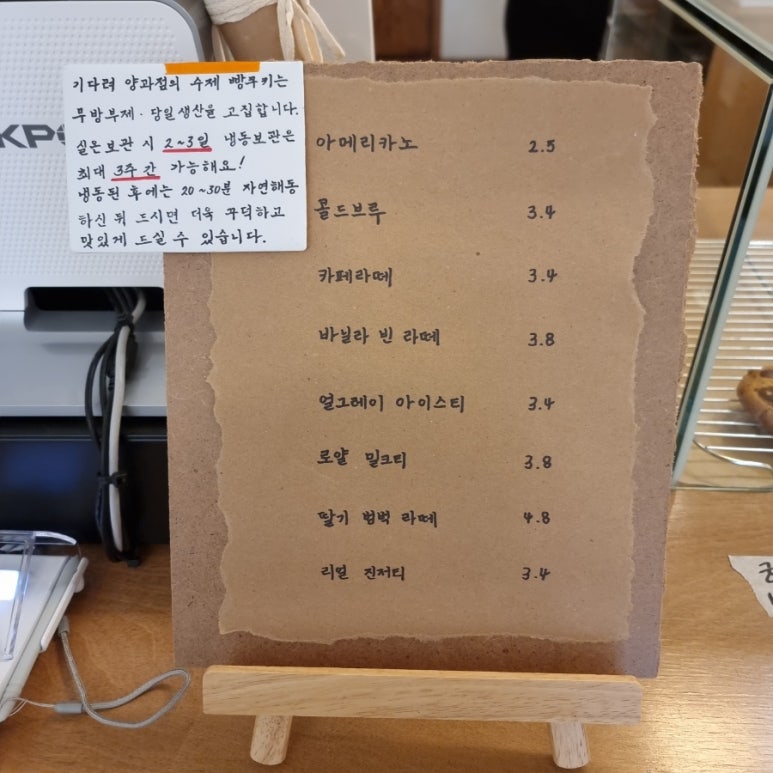 기다려 양과점의 수제 빵쿠키는
무방부제·당일생산을 고집합니다.
실온보관 시 2~3일 냉동보관은
최대 3주간 가능해요!
냉동된 후에는 20~30분 자연해동
하신 뒤 드시면 더욱 꾸덕하고
맛있게 드실 수 있습니다.
아메리카노 2.5
콜드브루 3.4
카페라떼 3.4
바닐라 빈 라떼 3.8
얼그레이 아이스티 3.4
로얄 밀크티 3.8
딸기 범벅 라떼 4.8
리얼 진저티 3.4